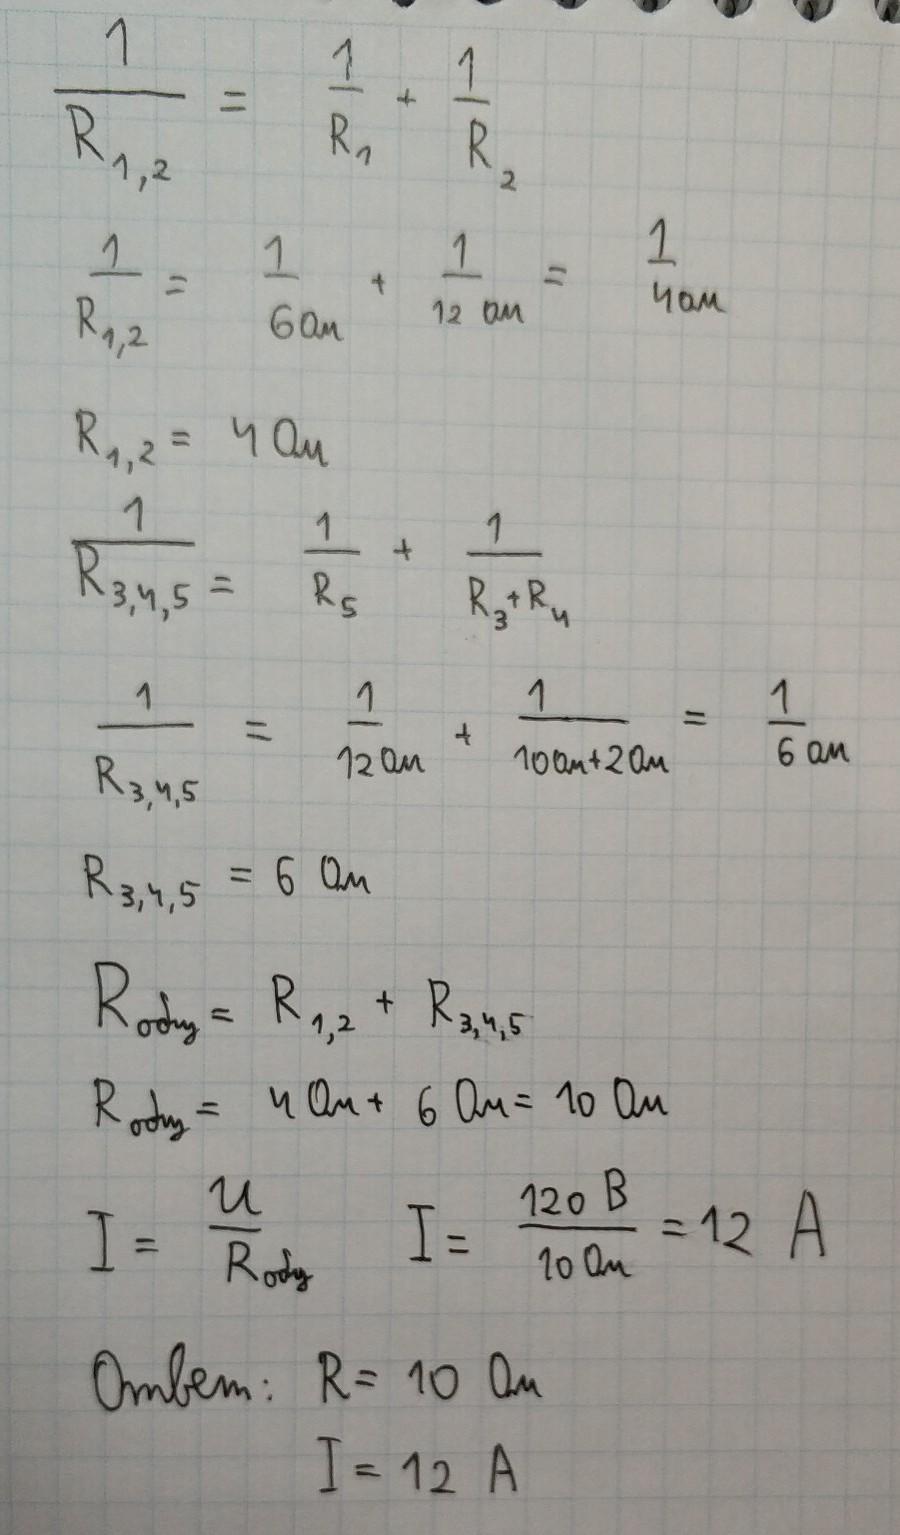 1/R₁,₂ = 1/R₁ + 1/R₂
1/R₁,₂ = 1/6 Ом + 1/12 Ом = 1/4 Ом
R₁,₂ = 4 Ом
1/R₃,₄,₅ = 1/R₅ + 1/(R₃+R₄)
1/R₃,₄,₅ = 1/12 Ом + 1/(10 Ом+2 Ом) = 1/6 Ом
R₃,₄,₅ = 6 Ом
Rобщ = R₁,₂ + R₃,₄,₅
Rобщ = 4 Ом + 6 Ом = 10 Ом
I = U/Rобщ I = 120 В/10 Ом = 12 А
Ответ: R = 10 Ом
I = 12 А